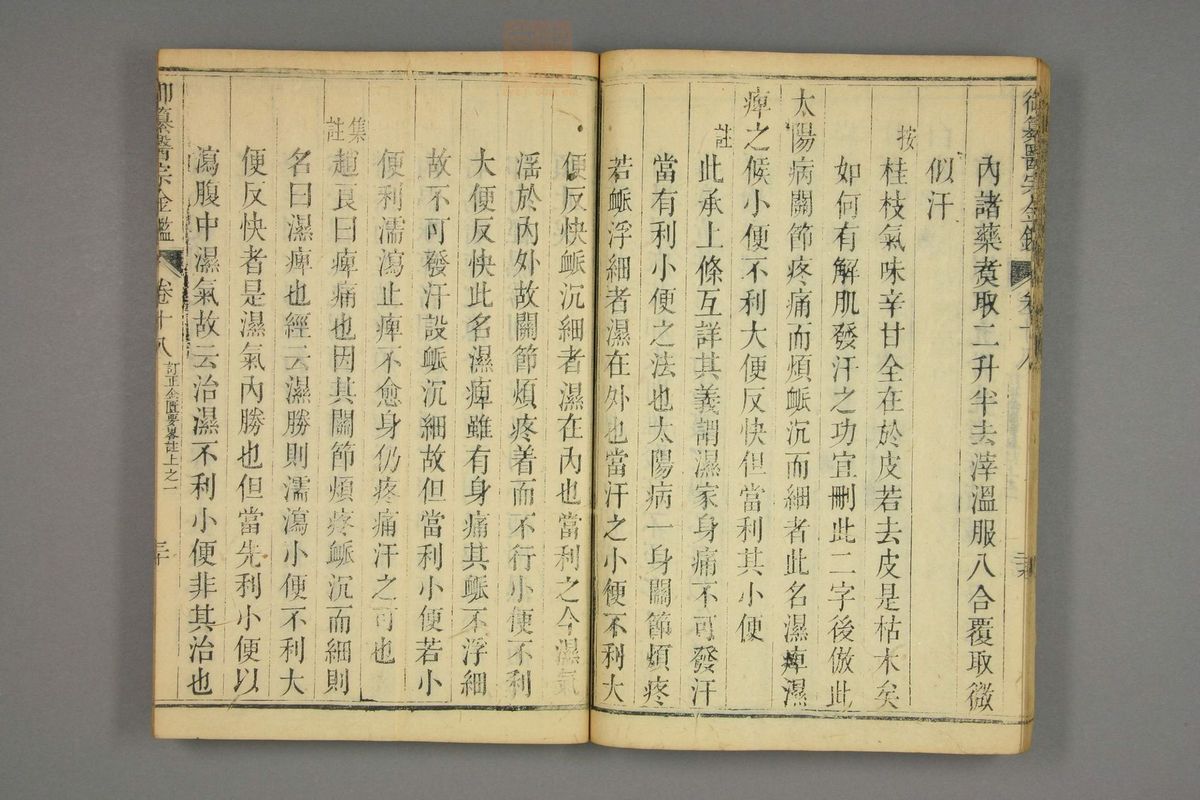 內諸藥煑取二升半去滓溫服八合覆取微
似汗
按桂枝氣味辛甘全在於皮若去皮是枯木矣
如何有解肌發汗之功宜刪此二字後倣此
太陽病關節疼痛而煩脈沉而細者此名濕痺濕
痺之候小便不利大便反快但當利其小便
註此承上條互詳其義謂濕家身痛不可發汗
當有利小便之法也太陽病一身關節煩疼
若脈浮細者濕在外也當汗之小便不利大
便反快脈沉細者濕在內也當利之今濕氣
淫於內外故關節煩疼着而不行小便不利
大便反快此名濕痺雖有身痛其脈不浮細
故不可發汗設脈沉細故但當利小便若小
便利濡瀉止痺不愈身仍疼痛汗之可也
集註趙良曰痺痛也因其關節煩疼脈沉而細則
名曰濕痺也經云濕勝則濡瀉小便不利大
便反快者是濕氣內勝也但當先利小便以
瀉腹中濕氣故云治濕不利小便非其治也
御纂醫宗金鑑 卷十八 訂正金匱要畧註上之一 三十